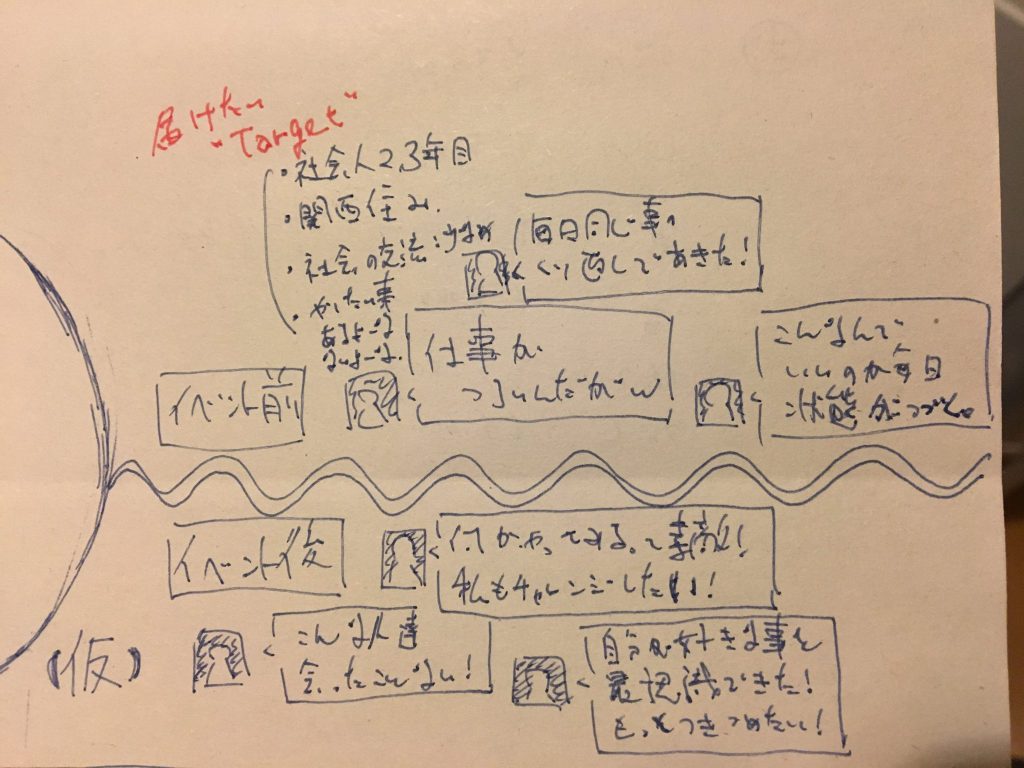 届けたい
"Target"
・社会人2,3年目
・関西住み
・社会の交流:少なめ
・やりたい事
あるよーな
ないよーな.
毎日同じ事の
くり返しであきた!
イベント前
仕事が
つまんだがw
こんなんで、
いいのか毎日
状態がつづく。
イベント後
何かやってみるって素敵!
私もチャレンジしたい!
(仮)
こんな人達
会ったことない!
自分の好きな事を
最認識できた!
もっとつきつめたい!